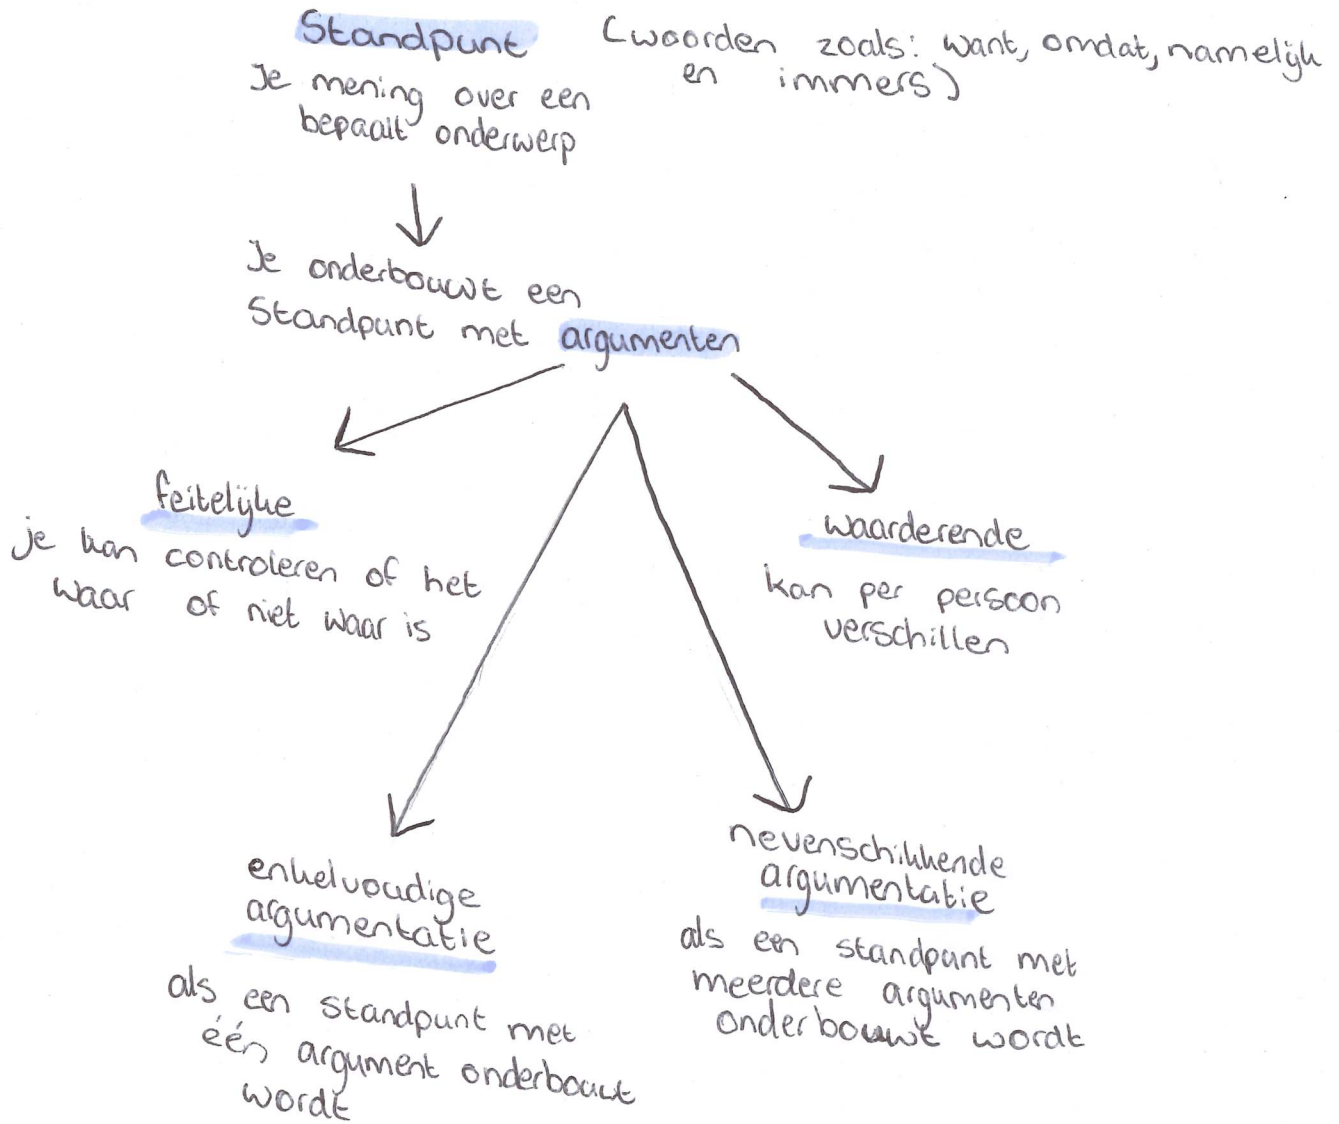 Standpunt (woorden zoals: want, omdat, namelijk
en immers)
Je mening over een
bepaalt onderwerp
Je onderbouwt een
Standpunt met argumenten
feitelijke
je kan controleren of het
waar of niet waar is
waarderende
kan per persoon
verschillen
enkelvoudige
argumentatie
als een standpunt met
één argument onderbouwt
wordt
nevenschikkende
argumentatie
als een standpunt met
meerdere argumenten
onderbouwt wordt